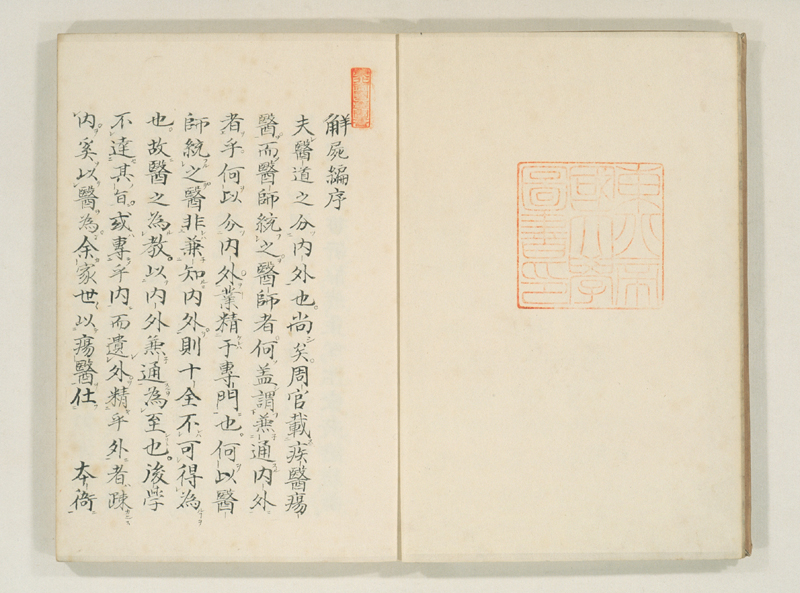 東京帝
國大學
圖書印
解屍編序
夫醫道之分內外也尚矣周官載疾醫瘍
醫而醫師統之醫師者何蓋謂兼通內外
者乎何以分內外業精于專門也何以醫
師統之醫非兼知內外則十全不可得為
也故醫之為教以內外兼通為至也後學
不達其旨或專乎內而遺外精乎外者疎
內奚以醫為余家世以瘍醫仕 本衙